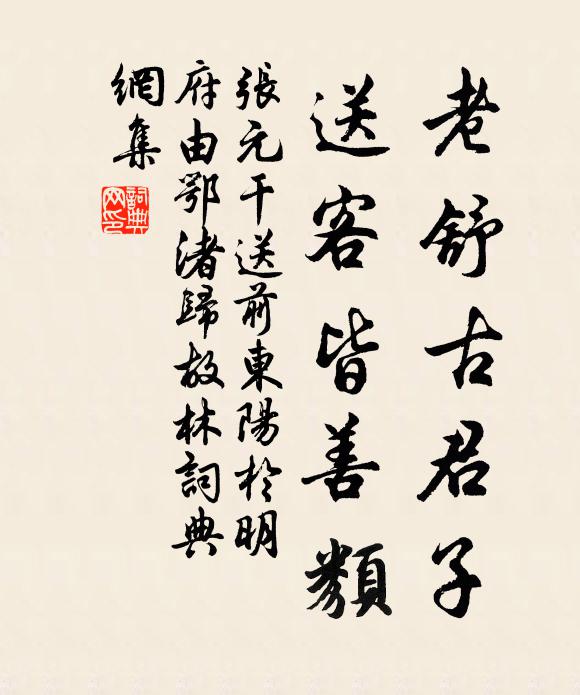 老舒古君子
送客皆善類
張元干送前東陽於明
府由鄂渚歸故林詞典
網集
詞典網印